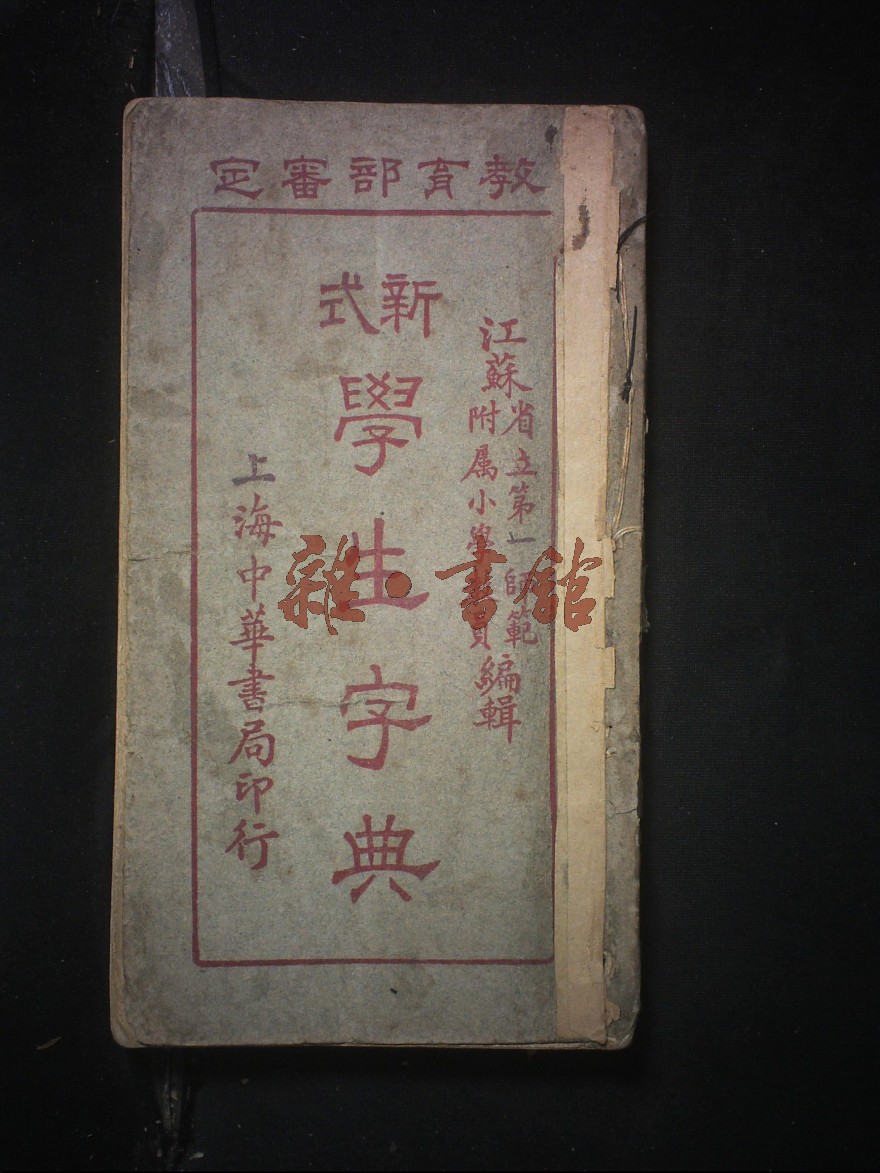 教育部審定
江蘇省立第一師範
附属小學教員編輯
新式
學生字典
上海中華書局印行
雜·書舘